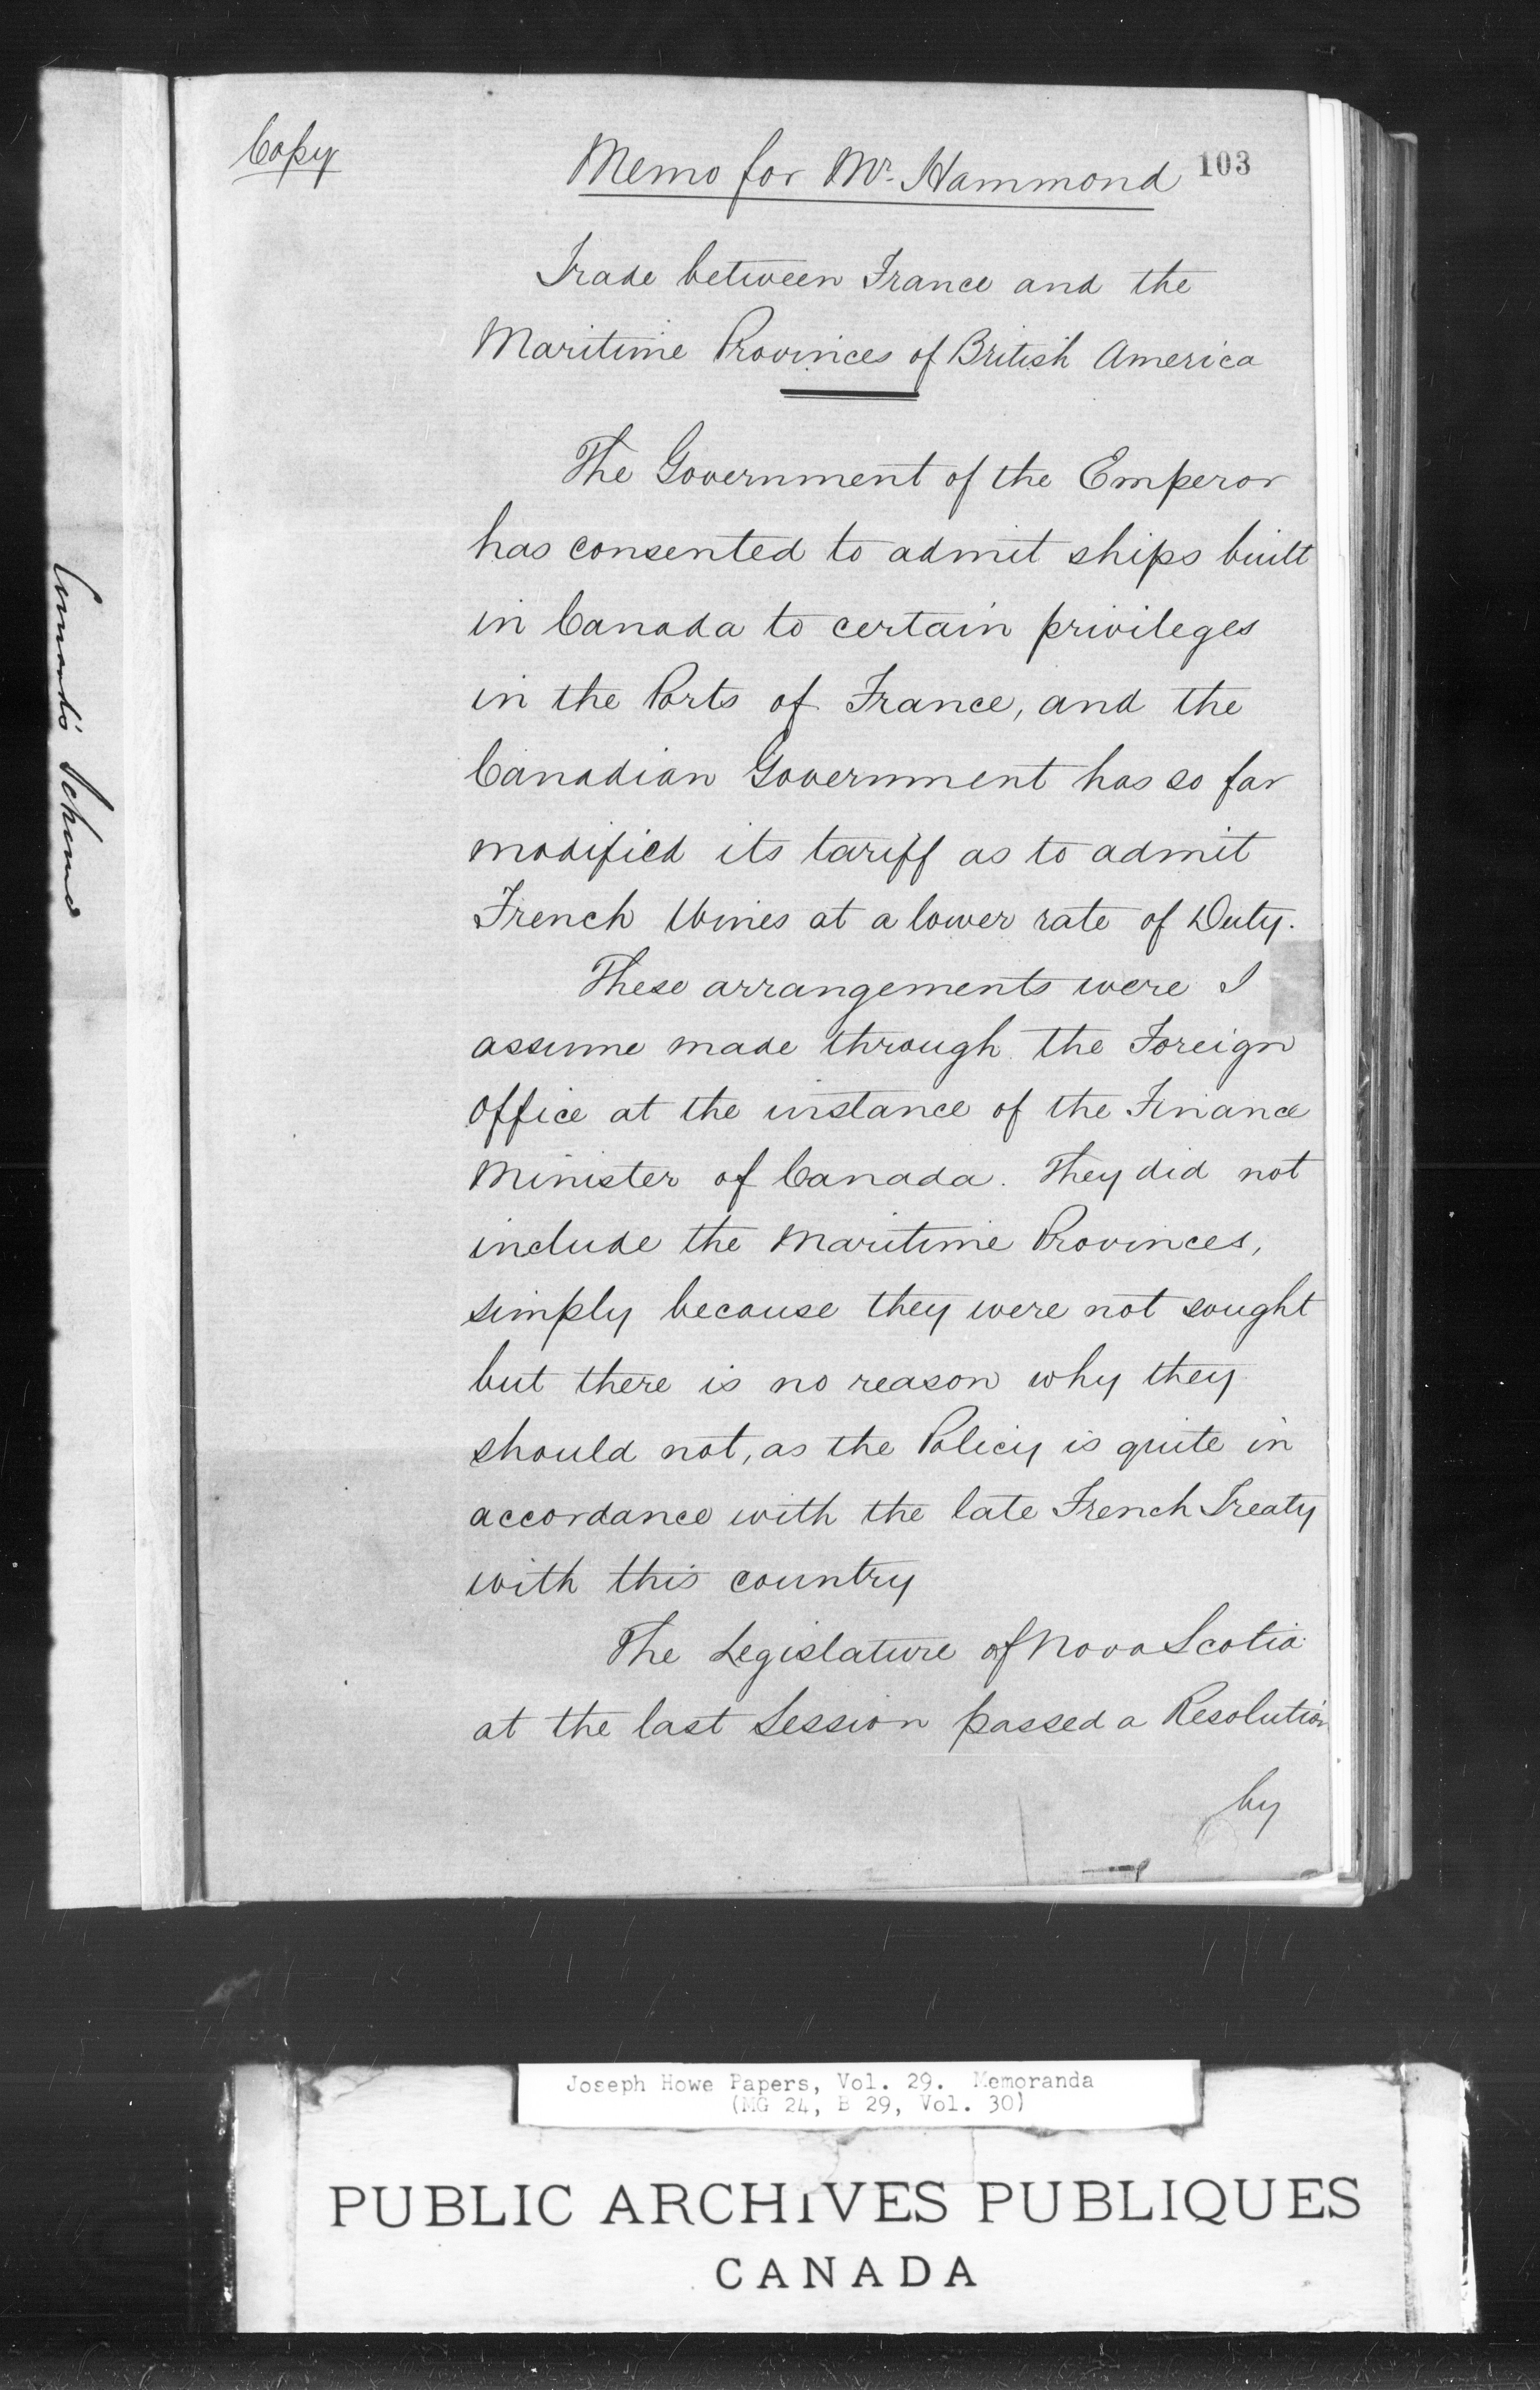 Copy
Memo for Mr. Hammond 103
Trade between France and the
Maritime Provinces of British America
The Government of the Emperor
has consented to admit ships built
in Canada to certain privileges
in the Ports of France, and the
Canadian Government has so far
modified its tariff as to admit
French Wines at a lower rate of Duty.
These arrangements were I
assume made through the Foreign
Office at the instance of the Finance
Minister of Canada. They did not
include the Maritime Provinces,
simply because they were not sought
but there is no reason why they
should not, as the Policy is quite in
accordance with the late French Treaty
with this country
The Legislature of Nova Scotia
at the last Session passed a Resolution
by
Joseph Howe Papers, Vol. 29. Memoranda
(MG 24, B 29, Vol. 30)
PUBLIC ARCHIVES PUBLIQUES
CANADA